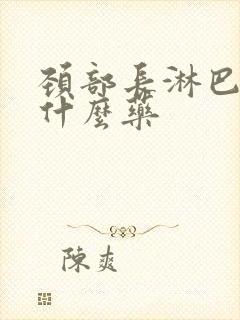 頚部長淋巴
什麼藥
陳爽